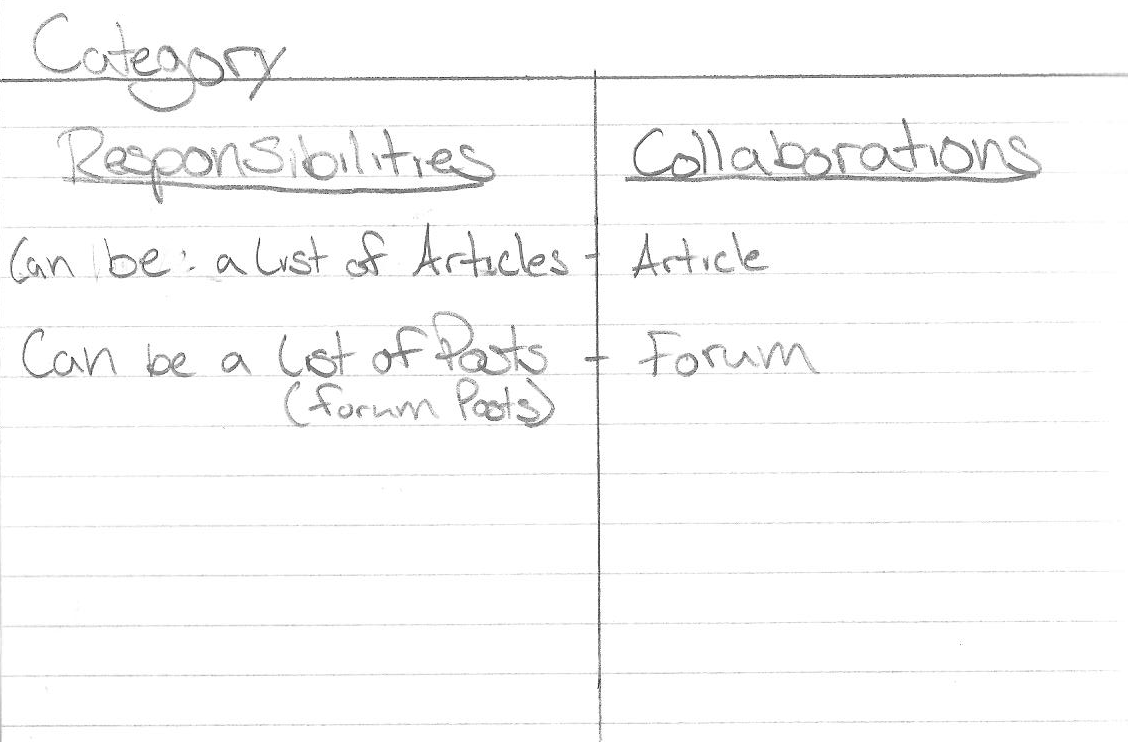 Category
Responsibilities Collaborations
Can be: a List of Articles - Article
Can be a List of Posts - Forum
(forum Posts)